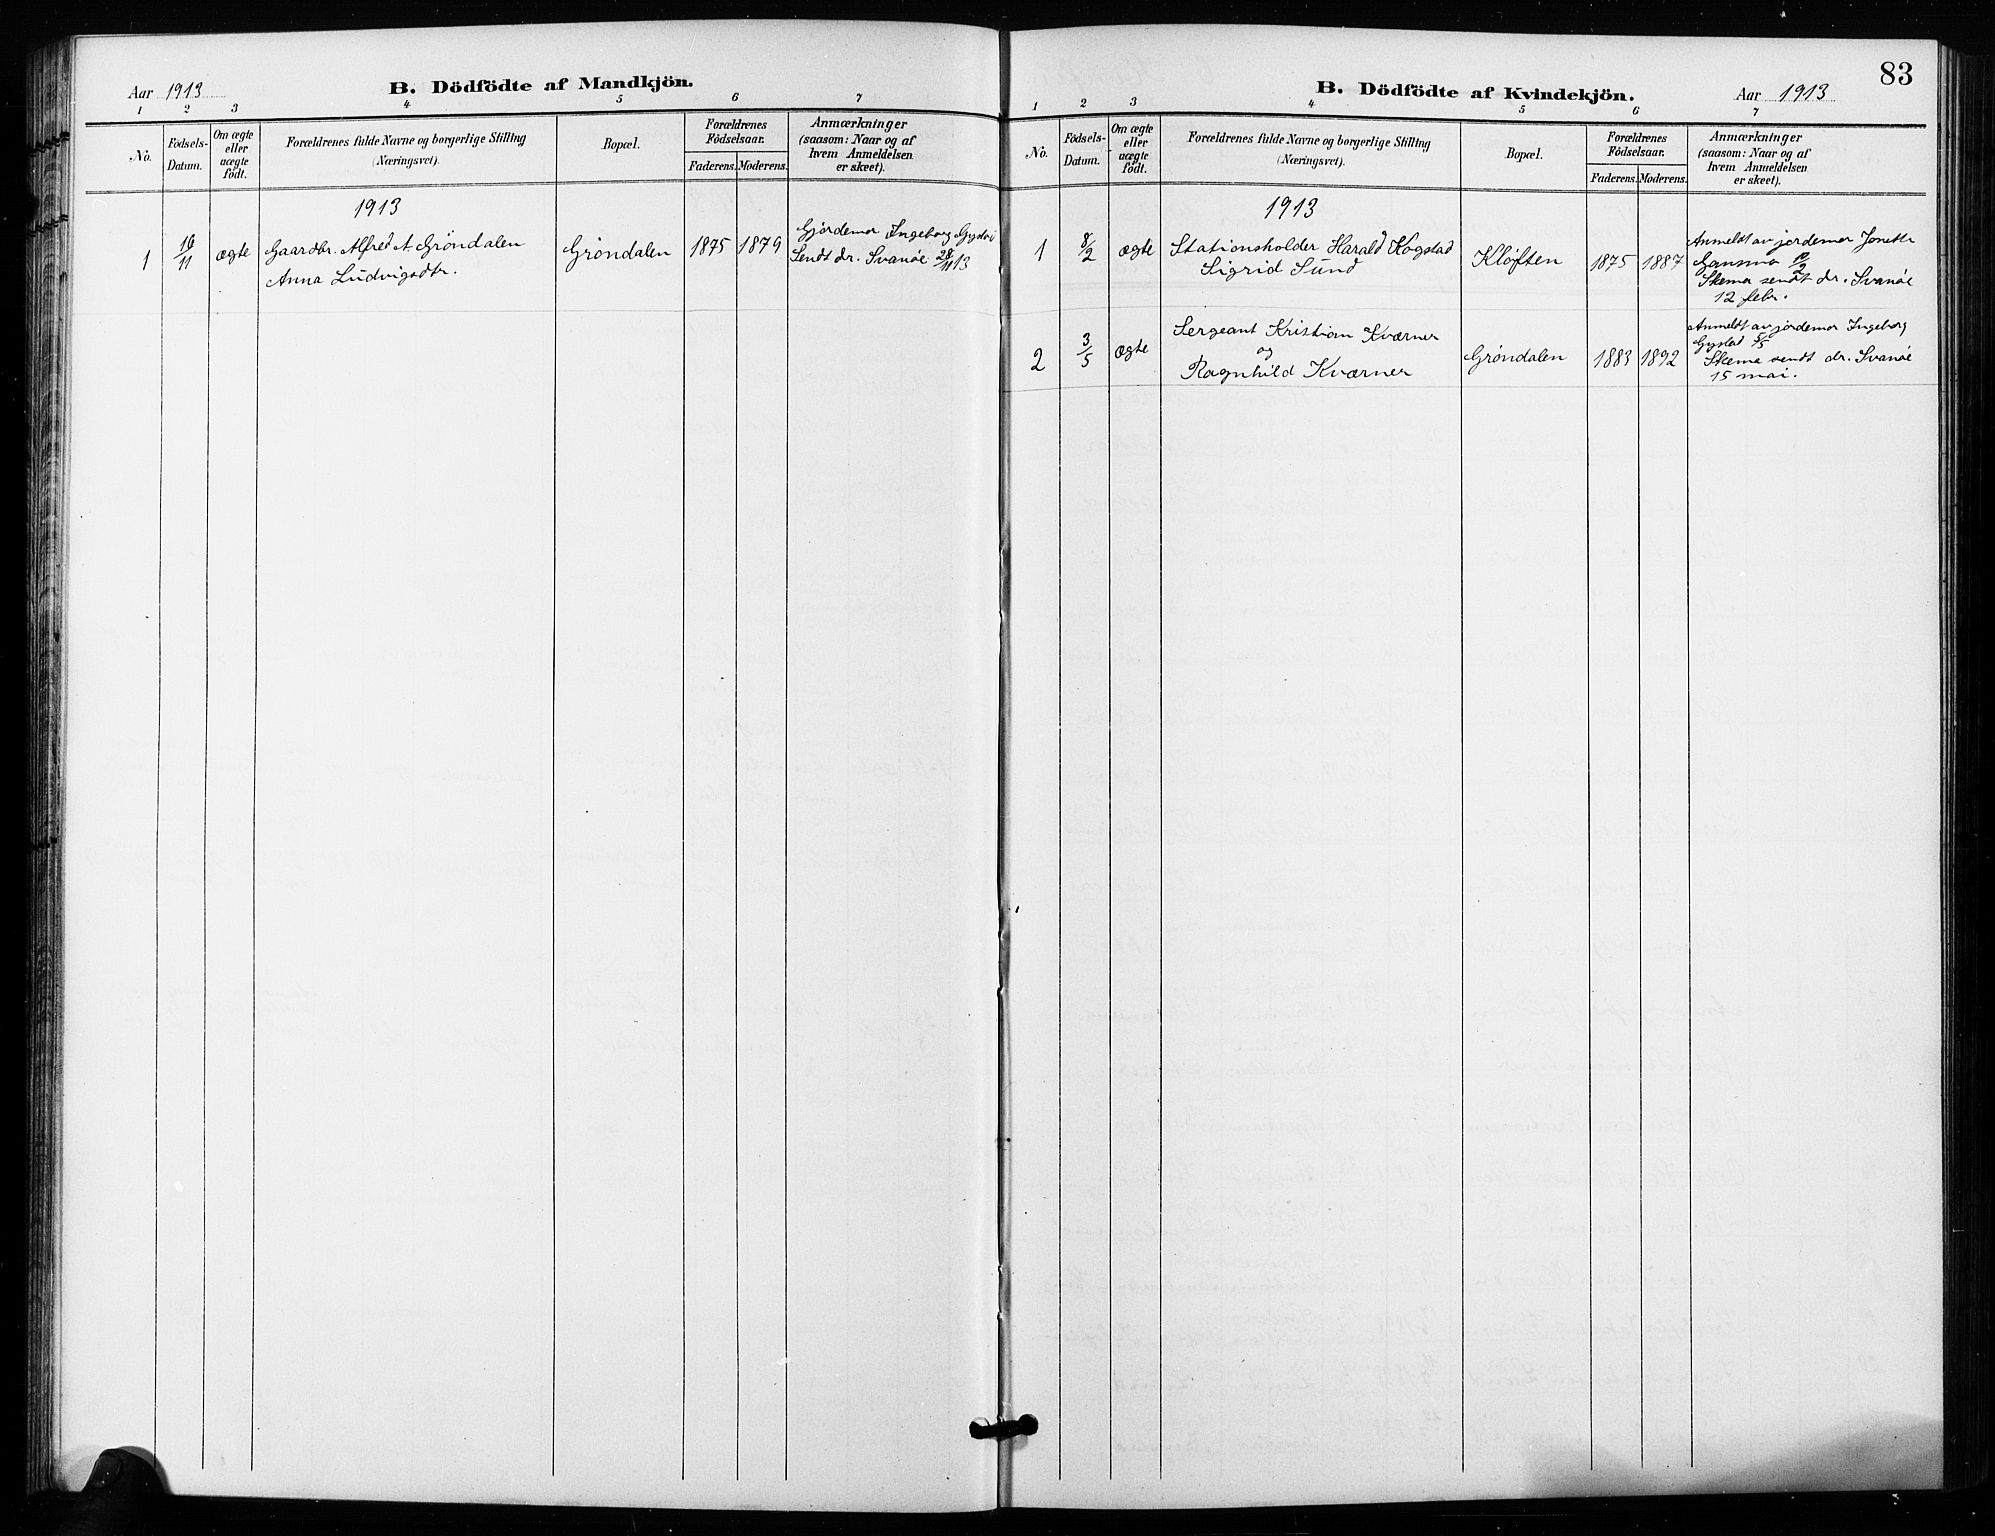 Aar 1913
B. Dödfödte af Mandkjön.
1 2 3 4 5 6 7
No.
Födsels-
Datum.
Om ægte
eller
uægte
födt.
Forældrenes fulde Navne og borgerlige Stilling
(Næringsvei).
Bopæl.
Forældrenes
Födselsaar.
Faderens. Moderens.
Anmærkninger
(saasom: Naar og af
hvem Anmeldelsen
er skeet).
1913
1
16/11
ægte
Gaardbr. Alfred A. Gröndalen
Anna Ludvigsdtr.
Gröndalen
1875
1879
Gjordemor Ingeborg
Sendt dr. Svanöe 28/11 13
83
B. Dödfödte af Kvindekjön.
Aar 1913
1 2 3 4 5 6 7
No.
Födsels-
Datum.
Om ægte
eller
uægte
födt.
Forældrenes fulde Navne og borgerlige Stilling
(Næringsvei).
Bopæl.
Forældrenes
Födselsaar.
Faderens. Moderens.
Anmærkninger
(saasom: Naar og af
hvem Anmeldelsen
er skeet).
1913
1
8/2
ægte
Stationsholder Harald Kogstad
Sigrid Sund
Kløften
1875
1887
Anmeldt av jordemor Jonette
Gansmo 10/2
Skema sendt dr. Svanöe
12 febr.
2
3/5
ægte
Sergeant Kristian Kværner
og
Ragnhild Kværner
Grøndalen
1883
1892
Anmeldt av jordemor Ingeborg
Skema sendt dr. Svanöe
15 mai.